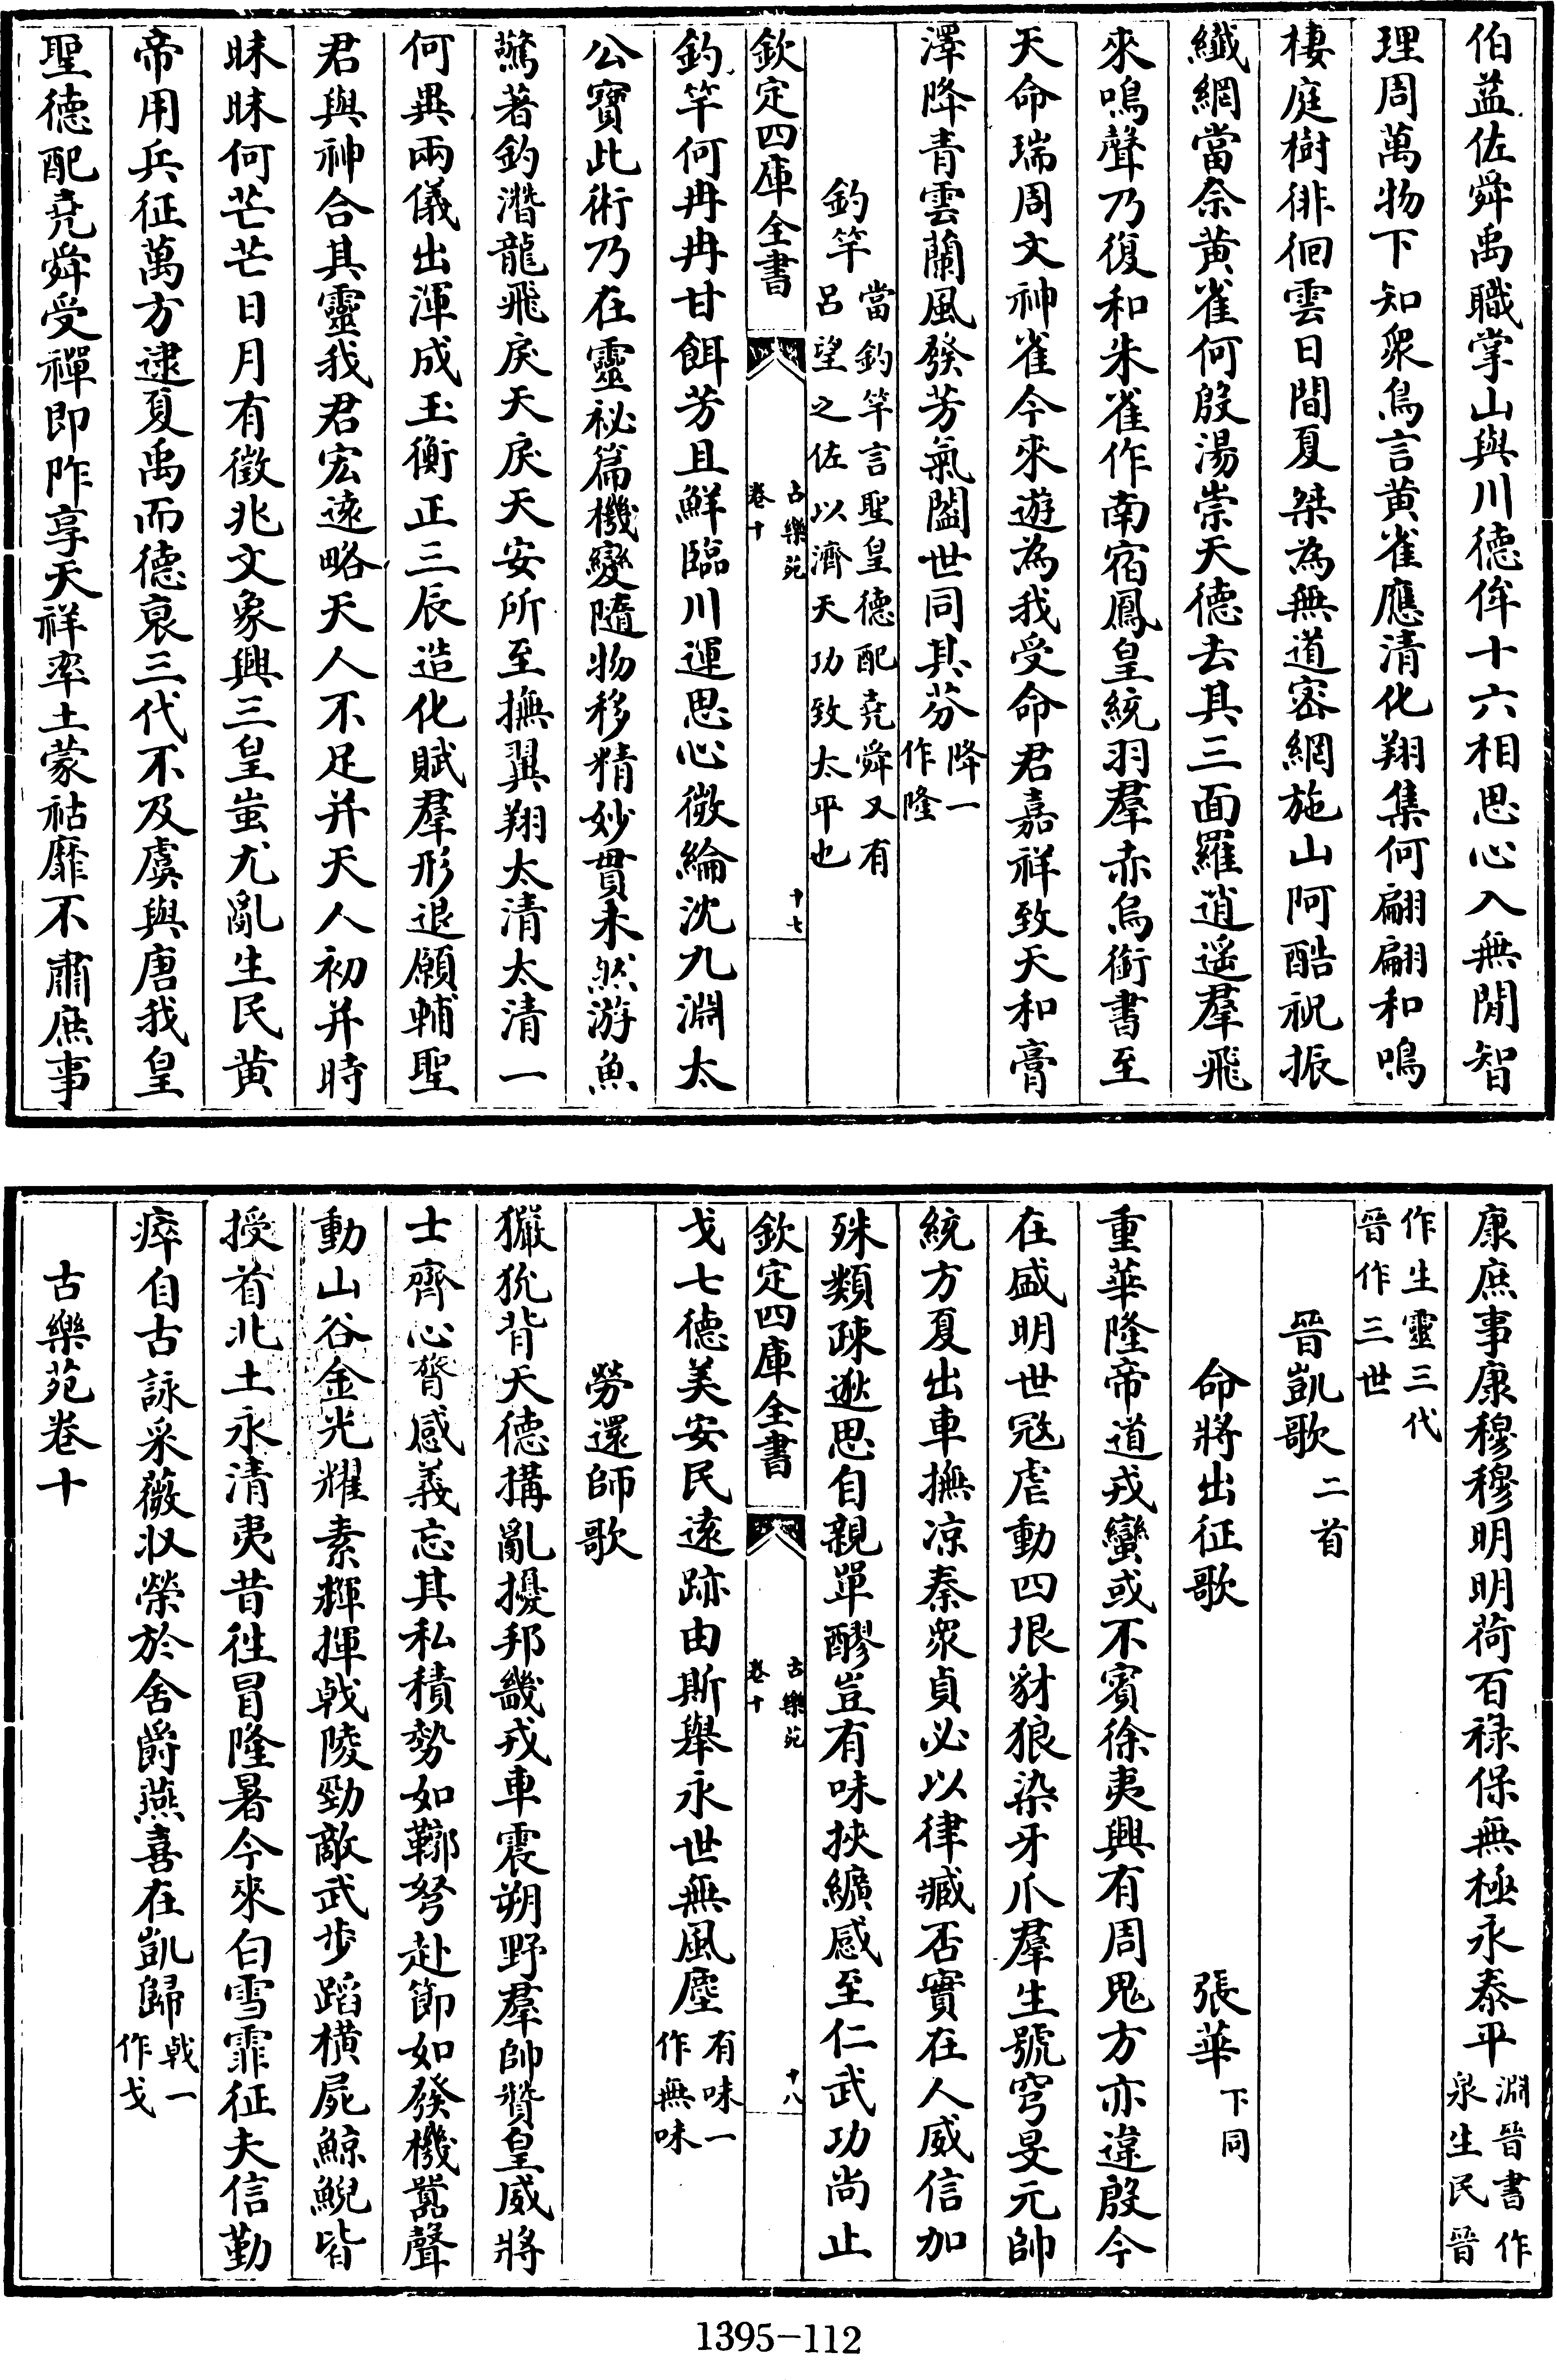 伯益佐舜禹職掌山與川德侔十六相思心入無間智
理周萬物下知衆鳥言黄雀應清化翔集何翩翩和鳴
棲庭樹徘徊雲日間夏桀為無道宻網施山阿酷祝振
纖網當奈黄雀何殷湯崇天德去其三面羅逍遥羣飛
來鳴聲乃復和朱雀作南宿鳳皇統羽羣赤烏銜書至
天命瑞周文神雀今來遊為我受命君嘉祥致天和膏
澤降青雲蘭風發芳氣闔世同其芬降一作隆
釣竿當釣竿言聖皇德配堯舜又有吕望之佐以濟天功致太平也
欽定四庫全書
古樂苑
卷十
十七
釣竿何冉冉甘餌芳且鮮臨川運思心微綸沈九淵太
公寳此術乃在靈祕篇機變隨物移精妙貫未然游魚
驚著釣潛龍飛戾天戾天安所至撫翼翔太清太清一
何異兩儀出渾成玉衡正三辰造化賦羣形退願輔聖
君與神合其靈我君宏逺略天人不足并天人初并時
昧昧何芒芒日月有徵兆文象興三皇蚩尤亂生民黄
帝用兵征萬方逮夏禹而德衰三代不及虞與唐我皇
聖德配堯舜受禪即阼享天祥率土蒙祜靡不肅庶事
康庶事康穆穆明明荷百禄保無極永泰平淵晉書作泉生民晉
作生靈三代晉作三世
晉凱歌二首
命將出征歌 張華下同
重華隆帝道戎蠻或不賓徐夷興有周鬼方亦違殷今
在盛明世宼虐動四垠豺狼染牙爪羣生號穹旻元帥
統方夏出車撫凉秦衆貞必以律臧否實在人威信加
殊類疎逖思自親單醪豈有味挾纊感至仁武功尚止
欽定四庫全書
古樂苑
卷十
十八
戈七德美安民逺跡由斯舉永世無風塵有味一作無味
勞還師歌
玁狁背天德搆亂擾邦畿戎車震朔野羣帥贊皇威將
士齊心膂感義忘其私積勢如鞹弩赴節如發機嚻聲
動山谷金光耀素輝揮戟陵勁敵武步蹈横屍鯨鯢皆
授首北土永清夷昔徃冒隆暑今來白雪霏征夫信勤
瘁自古詠采薇収榮於舍爵燕喜在凱歸戟一作戈
古樂苑卷十
1395-112